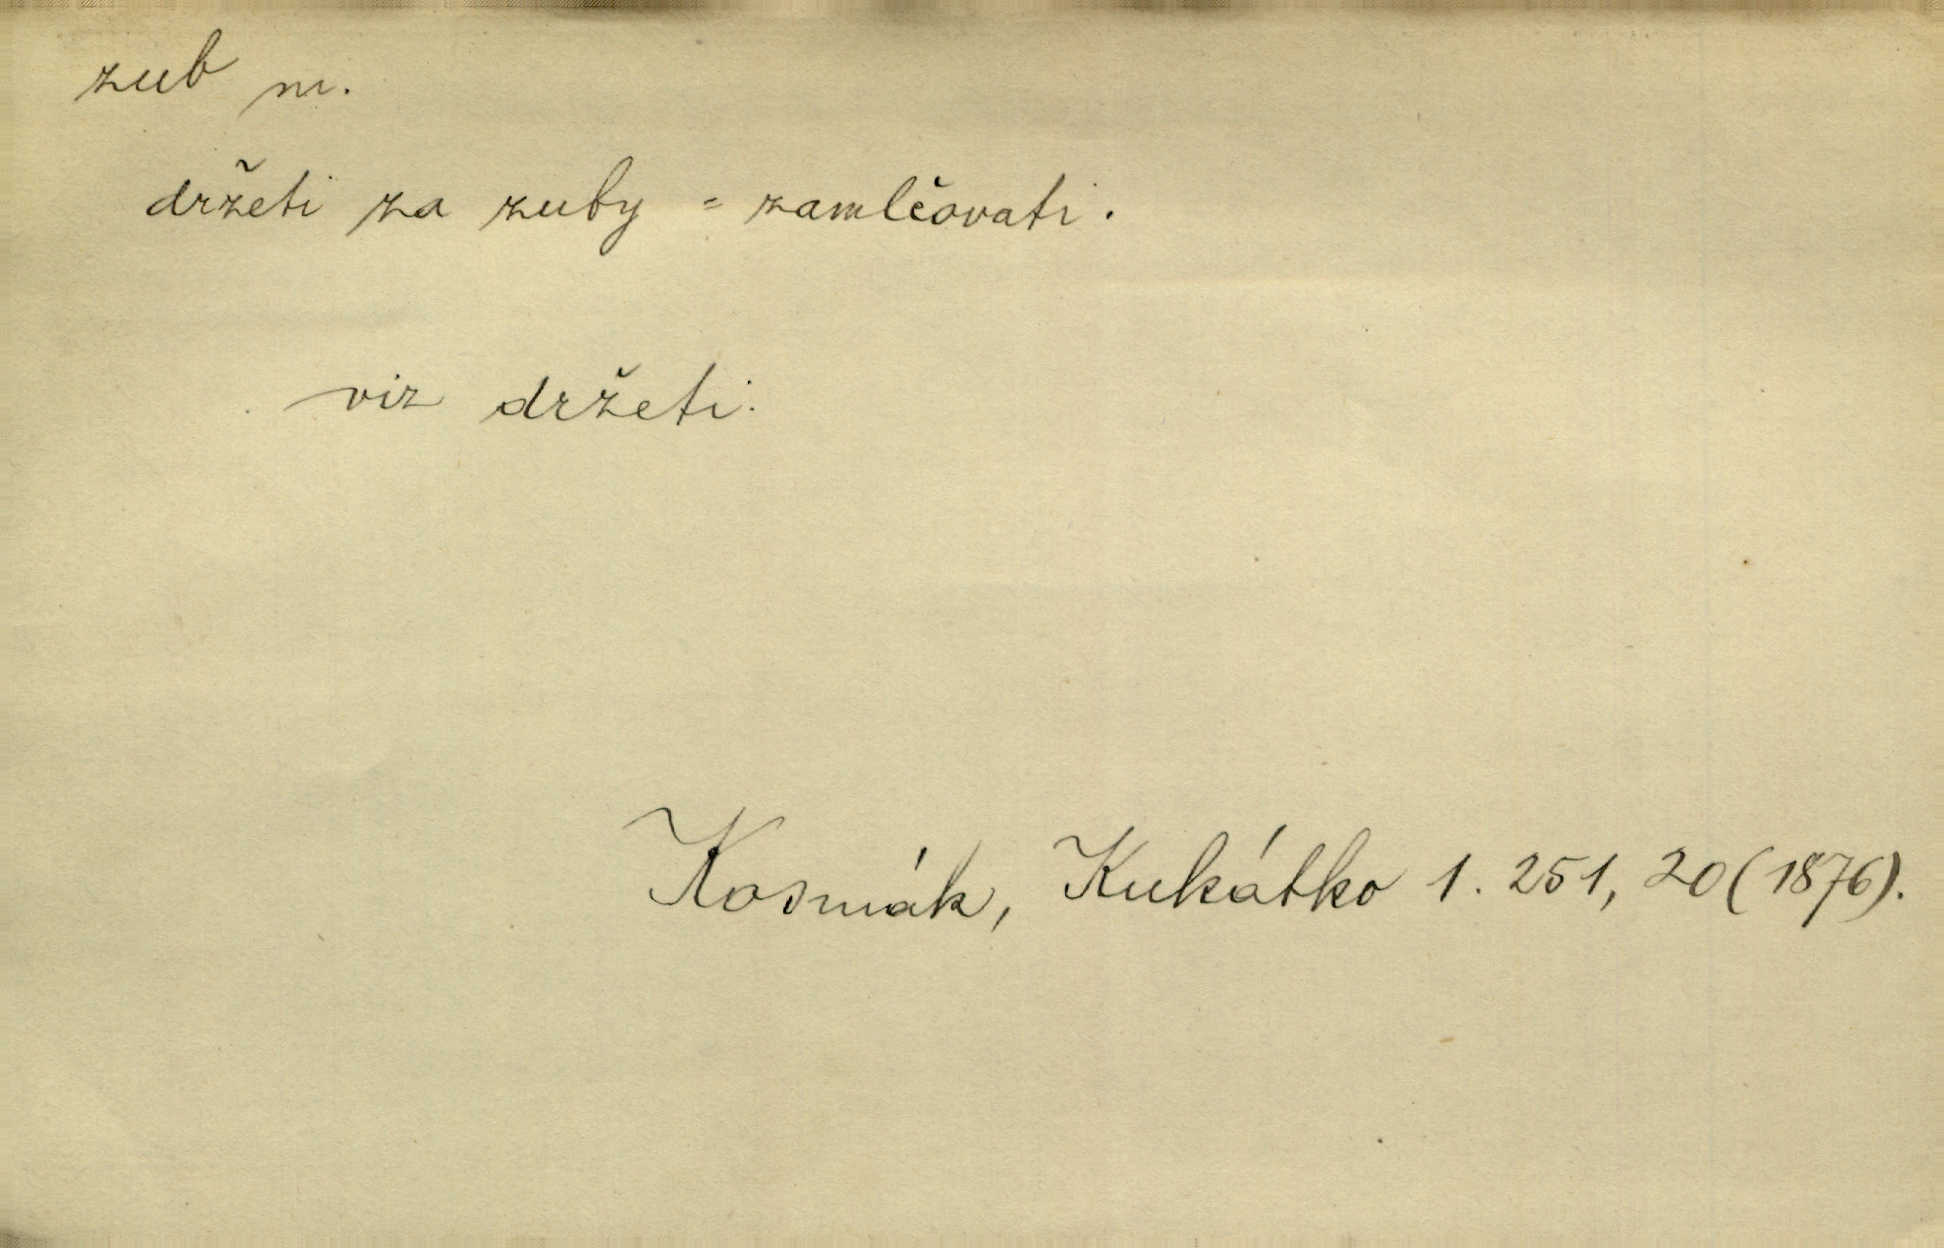 zub m.
držeti za zuby = zamlčovati.
viz držeti.
Kosmák, Kukátko 1. 251, 20 (1876).